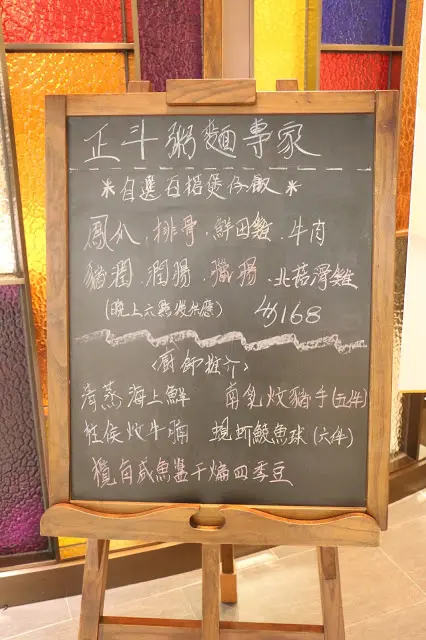 正斗粥麵專家
*自選百搭煲仔飯*
鳳爪、排骨、鮮田雞、牛肉
豬潤、潤腸、臘腸、北菇滑雞
(晚上六點後供應) 168
<廚師推介>
清蒸海上鮮 南乳炆豬手(五件)
柱侯炆牛腩 蜆蚧鯪魚球(六件)
欖角咸魚薑干煸四季豆